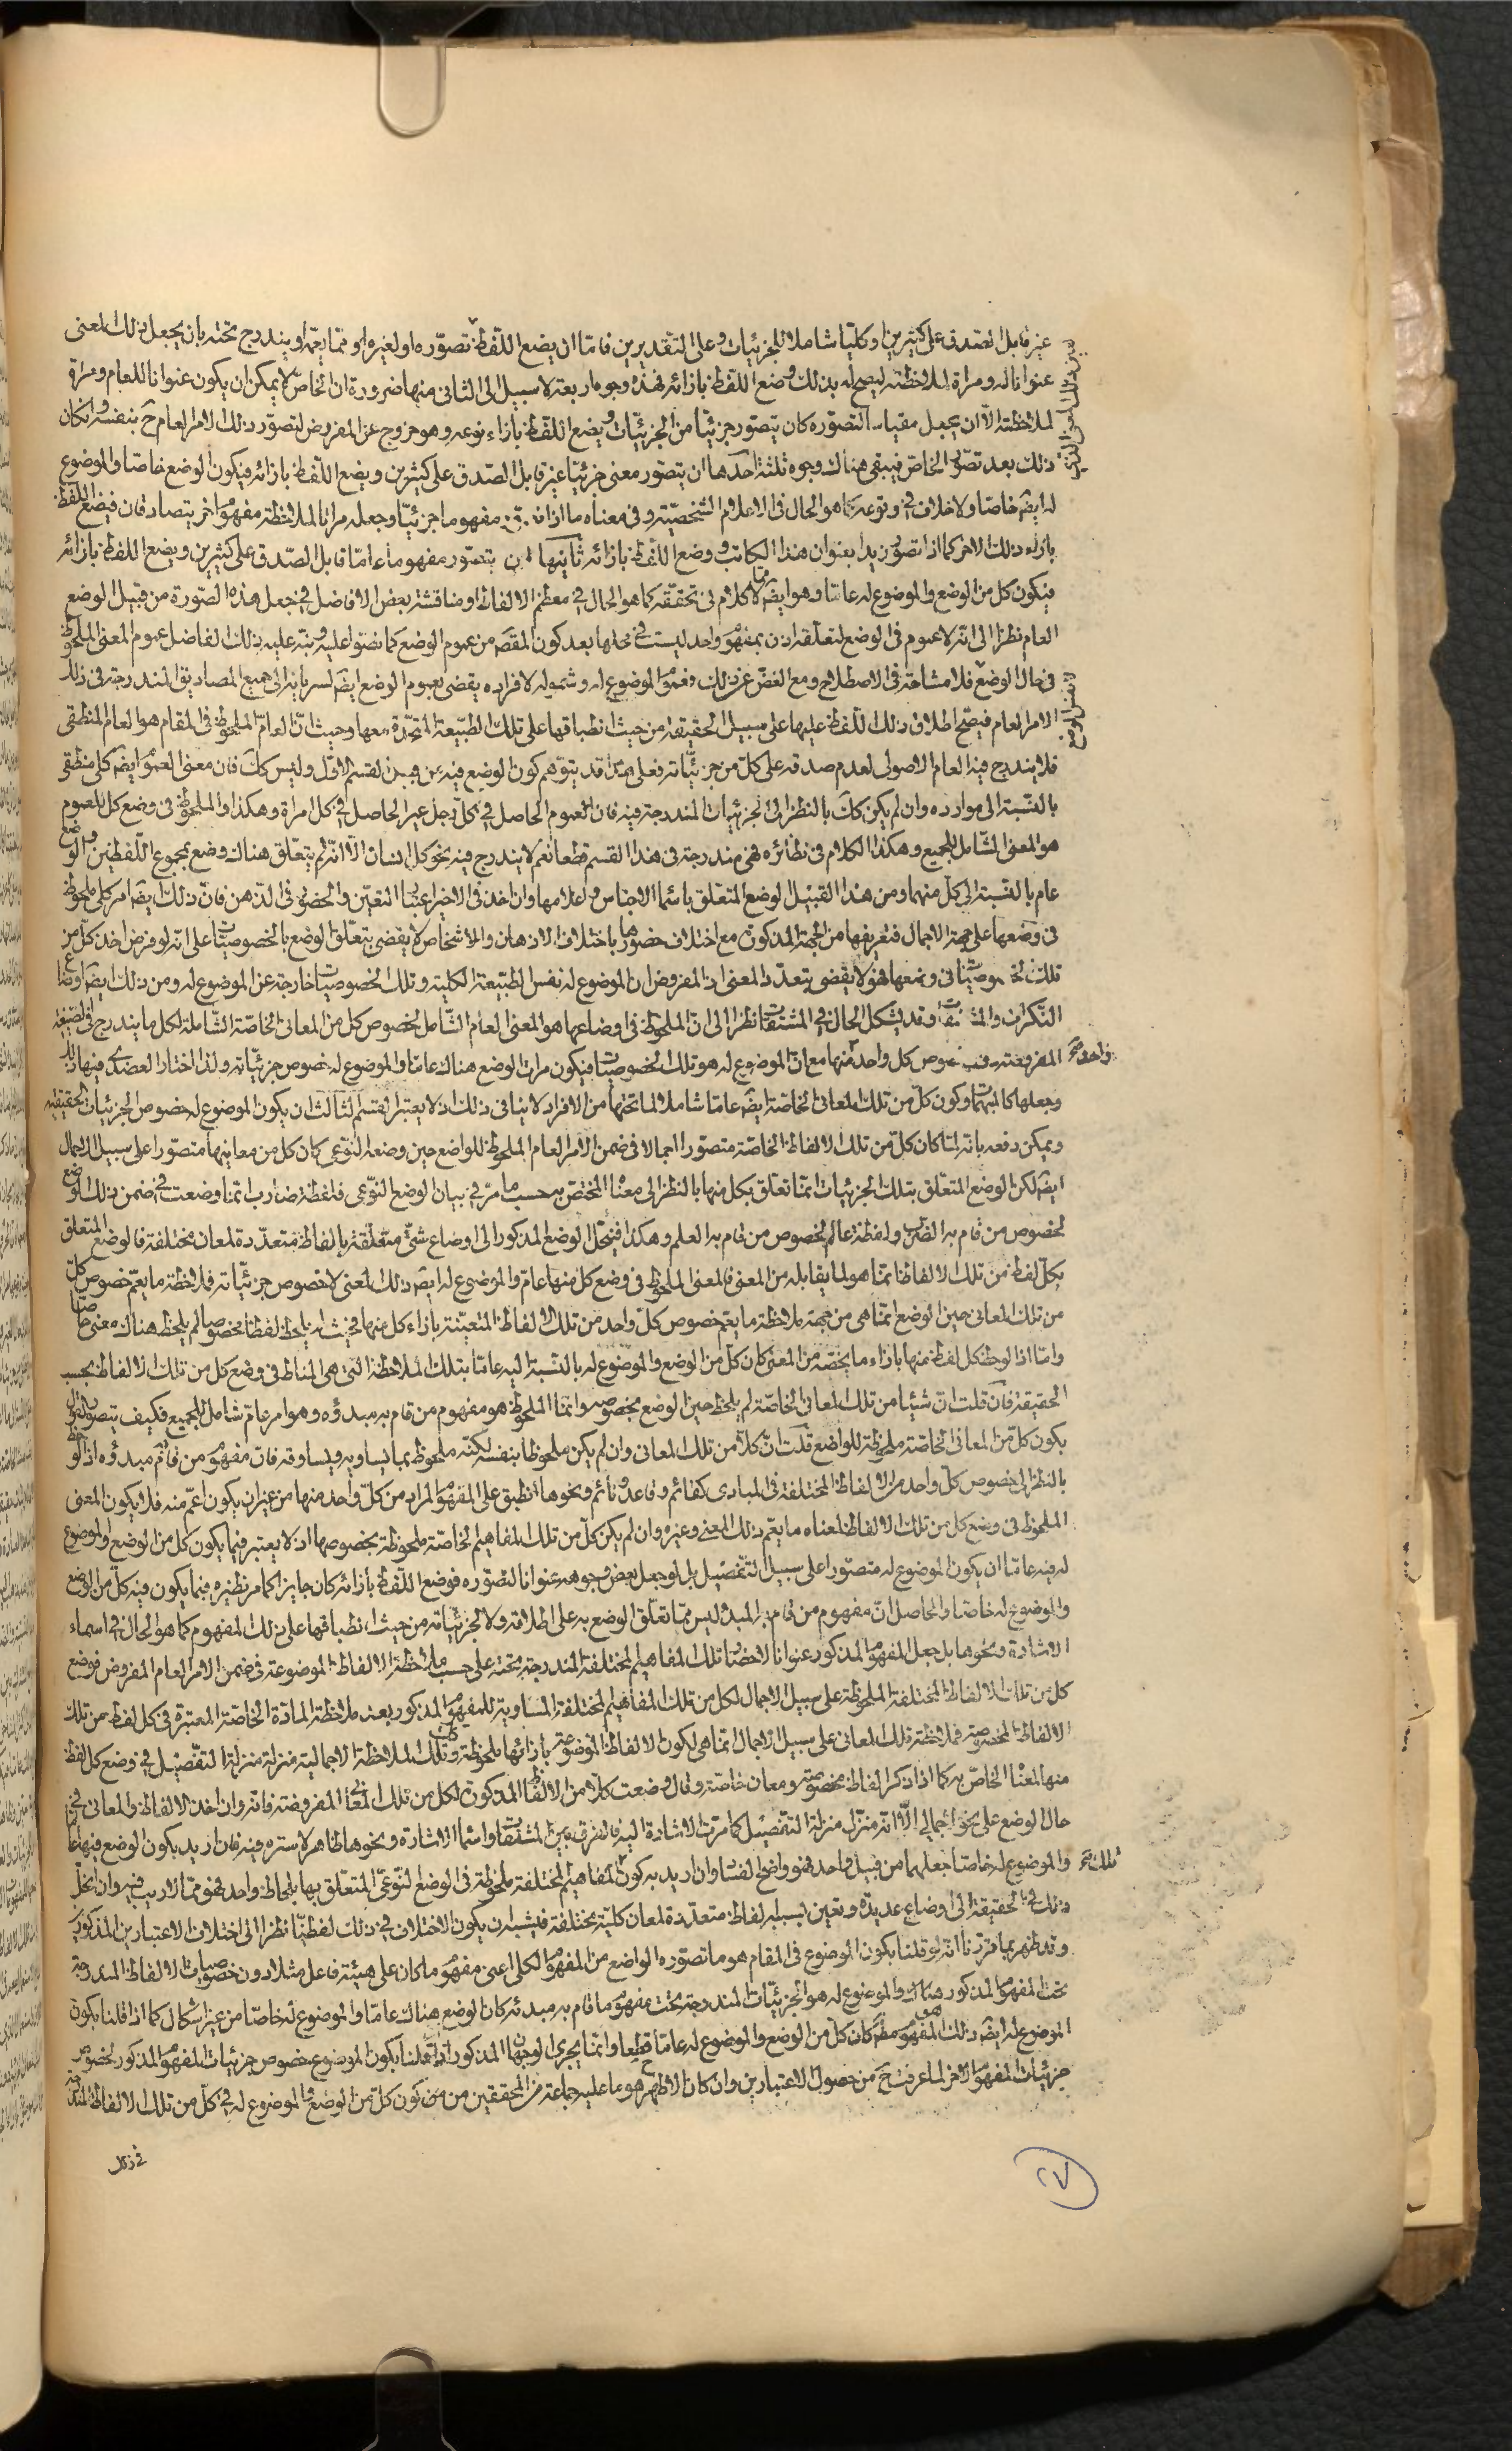 غير قابل الصدق على كثيرين او كليا شاملا للجزئيات وعلى التقديرين فاما ان يضع اللفظ لما تصوره او لغيره او مما يعمه او يندرج تحته بان يجعل ذلك المعنى
عنوانا له ومراة لملاحظته ليصح له بذلك وضع اللفظ بازائه فهذه وجوه اربعة لا سبيل الى الثانى منها ضرورة ان الخاص لا يمكن ان يكون عنوانا للعام ومراة
لملاحظته الا ان يجعل مقياسا لتصوره كان يتصور جزئيا من الجزئيات ويضع اللفظ بازاء نوعه وهو خروج عن المفروض لتصور ذلك الامر العام ح بنفسه وان كان
ذلك بعد تصور الخاص فيبقى هناك وجوه ثلثة احدها ان يتصور معنى جزئيا غير قابل الصدق على كثيرين ويضع اللفظ بازائه فيكون الوضع خاصا والموضوع
له ايضه خاصا ولا خلاف فى وقوعه كما هو الحال فى الاعلام الشخصية وفى معناه ما اذا مفهوما جزئيا وجعله مراتا لملاحظة مفهوم اخر يتصادقان فيضع اللفظ
بازاء ذلك الاخر كما اذا تصور زيدا بعنوان هذا الكاتب ووضع اللفظ بازائه ثانيها ان يتصور مفهوما عاما قابل الصدق على كثيرين ويضع اللفظ بازائه
فيكون كل من الوضع والموضوع له عاما وهو ايضه مما لا كلام فى تحققه كما هو الحال فى معظم الالفاظ ومناقشة بعض الافاضل فى جعل هذه الصورة من قبيل الوضع
العام نظرا الى انه لا عموم فى الوضع لتعلقه اذن بمفهوم واحد ليست فى محلها بعد كون المقصد من عموم الوضع كما نصوا عليه ونبه عليه ذلك الفاضل عموم المعنى الملحوظ
فى حال الوضع فلا مشاحة فى الاصطلاح ومع الغض عن ذلك فعموم الموضوع له وشموله لافراده يقضى بعموم الوضع ايضه لسريانه الى جميع المصاديق المندرجة فى ذلك
الامر العام فيصح اطلاق ذلك اللفظ عليها على سبيل الحقيقة من حيث انطباقها على تلك الطبيعة المتحدة معها وحيث ان العام الملحوظ فى المقام هو العام المنطقى
فلا يندرج فيه العام الاصولى لعدم صدقه على كل من جزئياته فعلى هذا قد يتوهم كون الوضع فيه من قبيل القسم الاول وليس كك فان معنى العموم ايضه كلى منطقى
بالنسبة الى موارده وان لم يكن كك بالنظر الى الجزئيات المندرجة فيه فان العموم الحاصل فى كل رجل غير الحاصل فى كل امراة وهكذا والملحوظ فى وضع كل للعموم
هو المعنى الشامل للجميع وهكذا الكلام فى نظائره فهى مندرجة فى هذا القسم قطعا نعم لا يندرج فيه نحو كل انسان الا انه لم يتعلق هناك وضع بمجموع اللفظين والوضع
عام بالنسبة الى كل منهما ومن هذا القبيل الوضع المتعلق باسماء الاجناس واعلامها وان اخذ فى الاخير اعتبار التعين والحضور فى الذهن فان ذلك ايضه امر كلى ملحوظ
فى وضعها على جهة الاجمال فتعريفها من الجهة المذكورة مع اختلاف حضورها باختلاف الاذهان والاشخاص لا يقضى بتعلق الوضع بالخصوصيات على انه لو فرض اخذ كل من
تلك الخصوصيات فى وضعها فهو لا يقضى بتعدد المعنى اذ المفروض ان الموضوع له نفس الطبيعة الكلية وتلك الخصوصيات خارجة عن الموضوع له ومن ذلك ايضه اوضاع
النكرات والمشتقات وقد يشكل الحال فى المشتقات نظرا الى ان الملحوظ فى اوضاعها هو المعنى العام الشامل لخصوص كل من المعانى الخاصة الشاملة لكل ما يندرج فى الصيغة
المفروضة خصوص كل واحد منها مع ان الموضوع له هو تلك الخصوصيات فيكون مرات الوضع هناك عاما والموضوع له خصوص جزئياته ولذا اختار العضدى فيها ذلك
وجعلها كالمبهمات وكون كل من تلك المعانى الخاصة ايضه عاما شاملا لما تحتها من الافراد لا ينافى ذلك اذ لا يعتبر فى القسم الثالث ان يكون الموضوع له خصوص الجزئيات الحقيقية
ويمكن دفعه بانه لما كان كل من تلك الالفاظ الخاصة متصورا اجمالا فى ضمن الامر العام الملحوظ للواضع حين وضعه النوعى كان كل من معانيها متصورا على سبيل الاجمال
ايضه لكن الوضع المتعلق بتلك الجزئيات انما تعلق بكل منها بالنظر الى معناه المختص به حسب ما مر فى بيان الوضع النوعى فلفظة ضارب انما وضعت فى ضمن ذلك الوضع
لخصوص من قام به الضرب ولفظة عالم لخصوص من قام به العلم وهكذا فينحل الوضع المذكور الى اوضاع شتى متعلقة بالفاظ متعددة لمعان مختلفة فالوضع المتعلق
بكل لفظ من تلك الالفاظ انما هو لما يقابله من المعنى فالمعنى الملحوظ فى وضع كل منها عام والموضوع له ايضه ذلك المعنى لا خصوص جزئياته فملاحظة ما يعم خصوص كل
من تلك المعانى حين الوضع انما هى من جهة ملاحظة ما يعم خصوص كل واحد من تلك الالفاظ المتعينة بازاء كل منها فحيث لم يلحظ لفظا مخصوصا لم يلحظ هناك معنى خاصا
واما اذا لوحظ كل لفظ منها بازاء ما يخصه من المعنى كان كل من الوضع والموضوع له بالنسبة اليه عاما بتلك الملاحظة التى هى المناط فى وضع كل من تلك الالفاظ بحسب
الحقيقة فان قلت ان شيئا من تلك المعانى الخاصة لم يلحظ حين الوضع بخصوصه وانما الملحوظ هو مفهوم من قام به مبدؤه وهو امر عام شامل للجميع فكيف يتصور القول
بكون كل من المعانى الخاصة ملحوظة للواضع قلت ان كلا من تلك المعانى وان لم يكن ملحوظا بنفسه لكنه ملحوظ بما يساويه ويساوقه فان مفهوم من قام به مبدؤه اذا لوحظ
بالنظر الى خصوص كل واحد من الالفاظ المختلفة فى المبادى كقائم وقاعد ونائم ونحوها انطبق على المفهوم المراد من كل واحد منها من غير ان يكون اعم منه فلا يكون المعنى
الملحوظ فى وضع كل من تلك الالفاظ لمعناه ما يعم ذلك المعنى وغيره وان لم يكن كل من تلك المفاهيم الخاصة ملحوظة بخصوصها اذ لا يعتبر فيما يكون كل من الوضع والموضوع
له فيه عاما ان يكون الموضوع له متصورا على سبيل التفصيل بل لو جعل بعض وجوهه عنوانا لتصوره فوضع اللفظ بازائه كان جايزا كما مر نظيره فيما يكون فيه كل من الوضع
والموضوع له خاصا والحاصل ان مفهوم من قام به المبدء ليس مما تعلق الوضع به على اطلاقه ولا لجزئياته من حيث انطباقها على ذلك المفهوم كما هو الحال فى اسماء
الاشارة ونحوها بل جعل المفهوم المذكور عنوانا لاحضار تلك المفاهيم المختلفة المندرجة تحته على حسب ملاحظة الالفاظ الموضوعة فى ضمن الامر العام المفروض فوضع
كل من تلك الالفاظ المختلفة الملحوظة على سبيل الاجمال لكل من تلك المفاهيم المختلفة المساوية للمفهوم المذكور بعد ملاحظة المادة الخاصة المعتبرة فى كل لفظ من تلك
الالفاظ المخصوصة فملاحظة تلك المعانى على سبيل الاجمال انما هى لكون الالفاظ الموضوعة بازائها ملحوظة كك وتلك الملاحظة الاجمالية منزلة منزلة التفصيل فى وضع كل لفظ
منها لمعناه الخاص به كما اذا ذكر الفاظ مخصوصة ومعان خاصة وقال وضعت كلا من الالفاظ المذكورة لكل من تلك المعانى المفروضة فانه وان اخذ الالفاظ والمعانى فى
حال الوضع على نحو اجمالى الا انه منزل منزلة التفصيل كما مرت الاشارة اليه فالفرق بين المشتقات واسماء الاشارة ونحوها ظاهر لا سترة فيه فان اريد بكون الوضع فيها عاما
والموضوع له خاصا جعلهما من قبيل واحد فهو واضح الفساد وان اريد به كون المفاهيم المختلفة ملحوظة فى الوضع النوعى المتعلق بها بلحاظ واحد فهو مما لا ريب فيه وان انحل
ذلك فى الحقيقة الى اوضاع عديدة وتعين بسببه الفاظ متعددة لمعان كلية مختلفة فيشبه ان يكون الاختلاف فى ذلك لفظيا نظرا الى اختلاف الاعتبارين المذكورين
وقد ظهر بما قررنا انه لو قلنا بكون الموضوع فى المقام هو ما تصوره الواضع من المفهوم الكلى اعنى مفهوم ما كان على هيئة فاعل مثلا دون خصوصيات الالفاظ المندرجة
تحت المفهوم المذكور هناك والموضوع له هو الجزئيات المندرجة تحت مفهوم ما قام به مبدئه كان الوضع هناك عاما والموضوع له خاصا من غير اشكال كما اذا قلنا بكون
الموضوع له ايضه ذلك المفهوم مطه كان كل من الوضع والموضوع له عاما قطعا وانما يجرى الوجهان المذكوران لو قلنا بكون الموضوع خصوص جزئيات المفهوم المذكور لخصوص
جزئيات المفهوم الاخر لما عرفت ح من حصول الاعتبارين وان كان الاظهر هو ما عليه جماعة من المحققين من كون كل من الوضع والموضوع له فى كل من تلك الالفاظ المندرجة
فى ذلك
٢٧